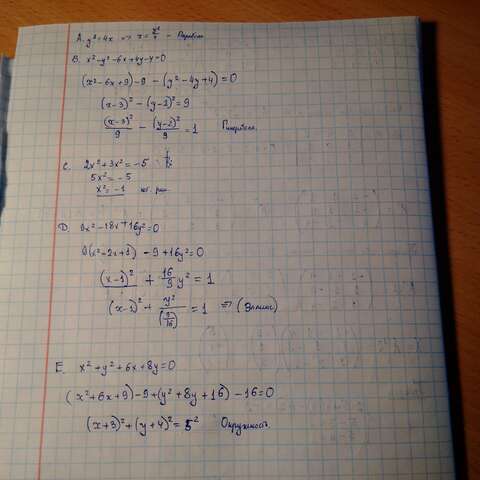 A. y² = 4x => x = y²/4 - Парабола
B. x² - y² - 6x + 4y - 4 = 0
(x² - 6x + 9) - 9 - (y² - 4y + 4) = 0
(x-3)² - (y-2)² = 9
(x-3)²/9 - (y-2)²/9 = 1 Гипербола
C. 2x² + 3x² = -5
5x² = -5
x² = -1 нет реш.
D. 9x² - 18x + 16y² = 0
9(x² - 2x + 1) - 9 + 16y² = 0
(x-1)² + 16/9 y² = 1
(x-1)² + y²/(9/16) = 1 => (Эллипс)
E. x² + y² + 6x + 8y = 0
(x² + 6x + 9) - 9 + (y² + 8y + 16) - 16 = 0
(x+3)² + (y+4)² = 5² Окружность